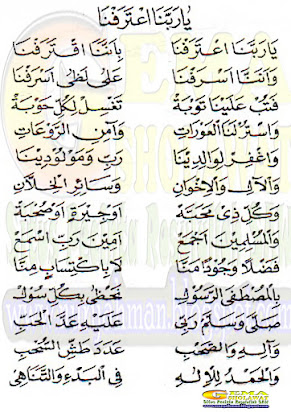 يَا رَبَّنَا اعْتَرَفْنَا
يَا رَبَّنَا اعْتَرَفْنَا بِأَنَّنَا اقْتَرَفْنَا
وَأَنَّنَا أَسْرَفْنَا عَلَى لَظَى أَشْرَفْنَا
فَتُبْ عَلَيْنَا تَوْبَةً تَغْسِلْ لِكُلِّ حَوْبَةٍ
وَاسْتُرْ لَنَا الْعَوْرَاتِ وَآمِنِ الرَّوْعَاتِ
وَاغْفِرْ لِوَالِدِيْنَا رَبِّ وَمَوْلُوْدِيْنَا
وَالْآلِ وَالْإِخْوَانِ وَسَائِرِ الْخِلَّانِ
وَكُلِّ ذِيْ مَحَبَّةٍ أَوْ جِيْرَةٍ أَوْ صُحْبَةٍ
وَالْمُسْلِمِيْنَ أَجْمَعْ آمِيْنَ رَبِّ اسْمَعْ
فَضْلًا وَجُوْدًا مَنَّا لَا بِاكْتِسَابٍ مِنَّا
بِالْمُصْطَفَى الرَّسُوْلِ نَحْظَى بِكُلِّ سُوْلِ
صَلَّى وَسَلَّمْ رَبِّيْ عَلَيْهِ عَدَّ الْحَبِّ
وَآلِهِ وَالصَّحْبِ عِدَادَ طَشِّ السُّحْبِ
وَالْحَمْدُ لِلْإِلَهِ فِي الْبَدْءِ وَالتَّنَاهِيْ
GEMA
SHOLAWAT